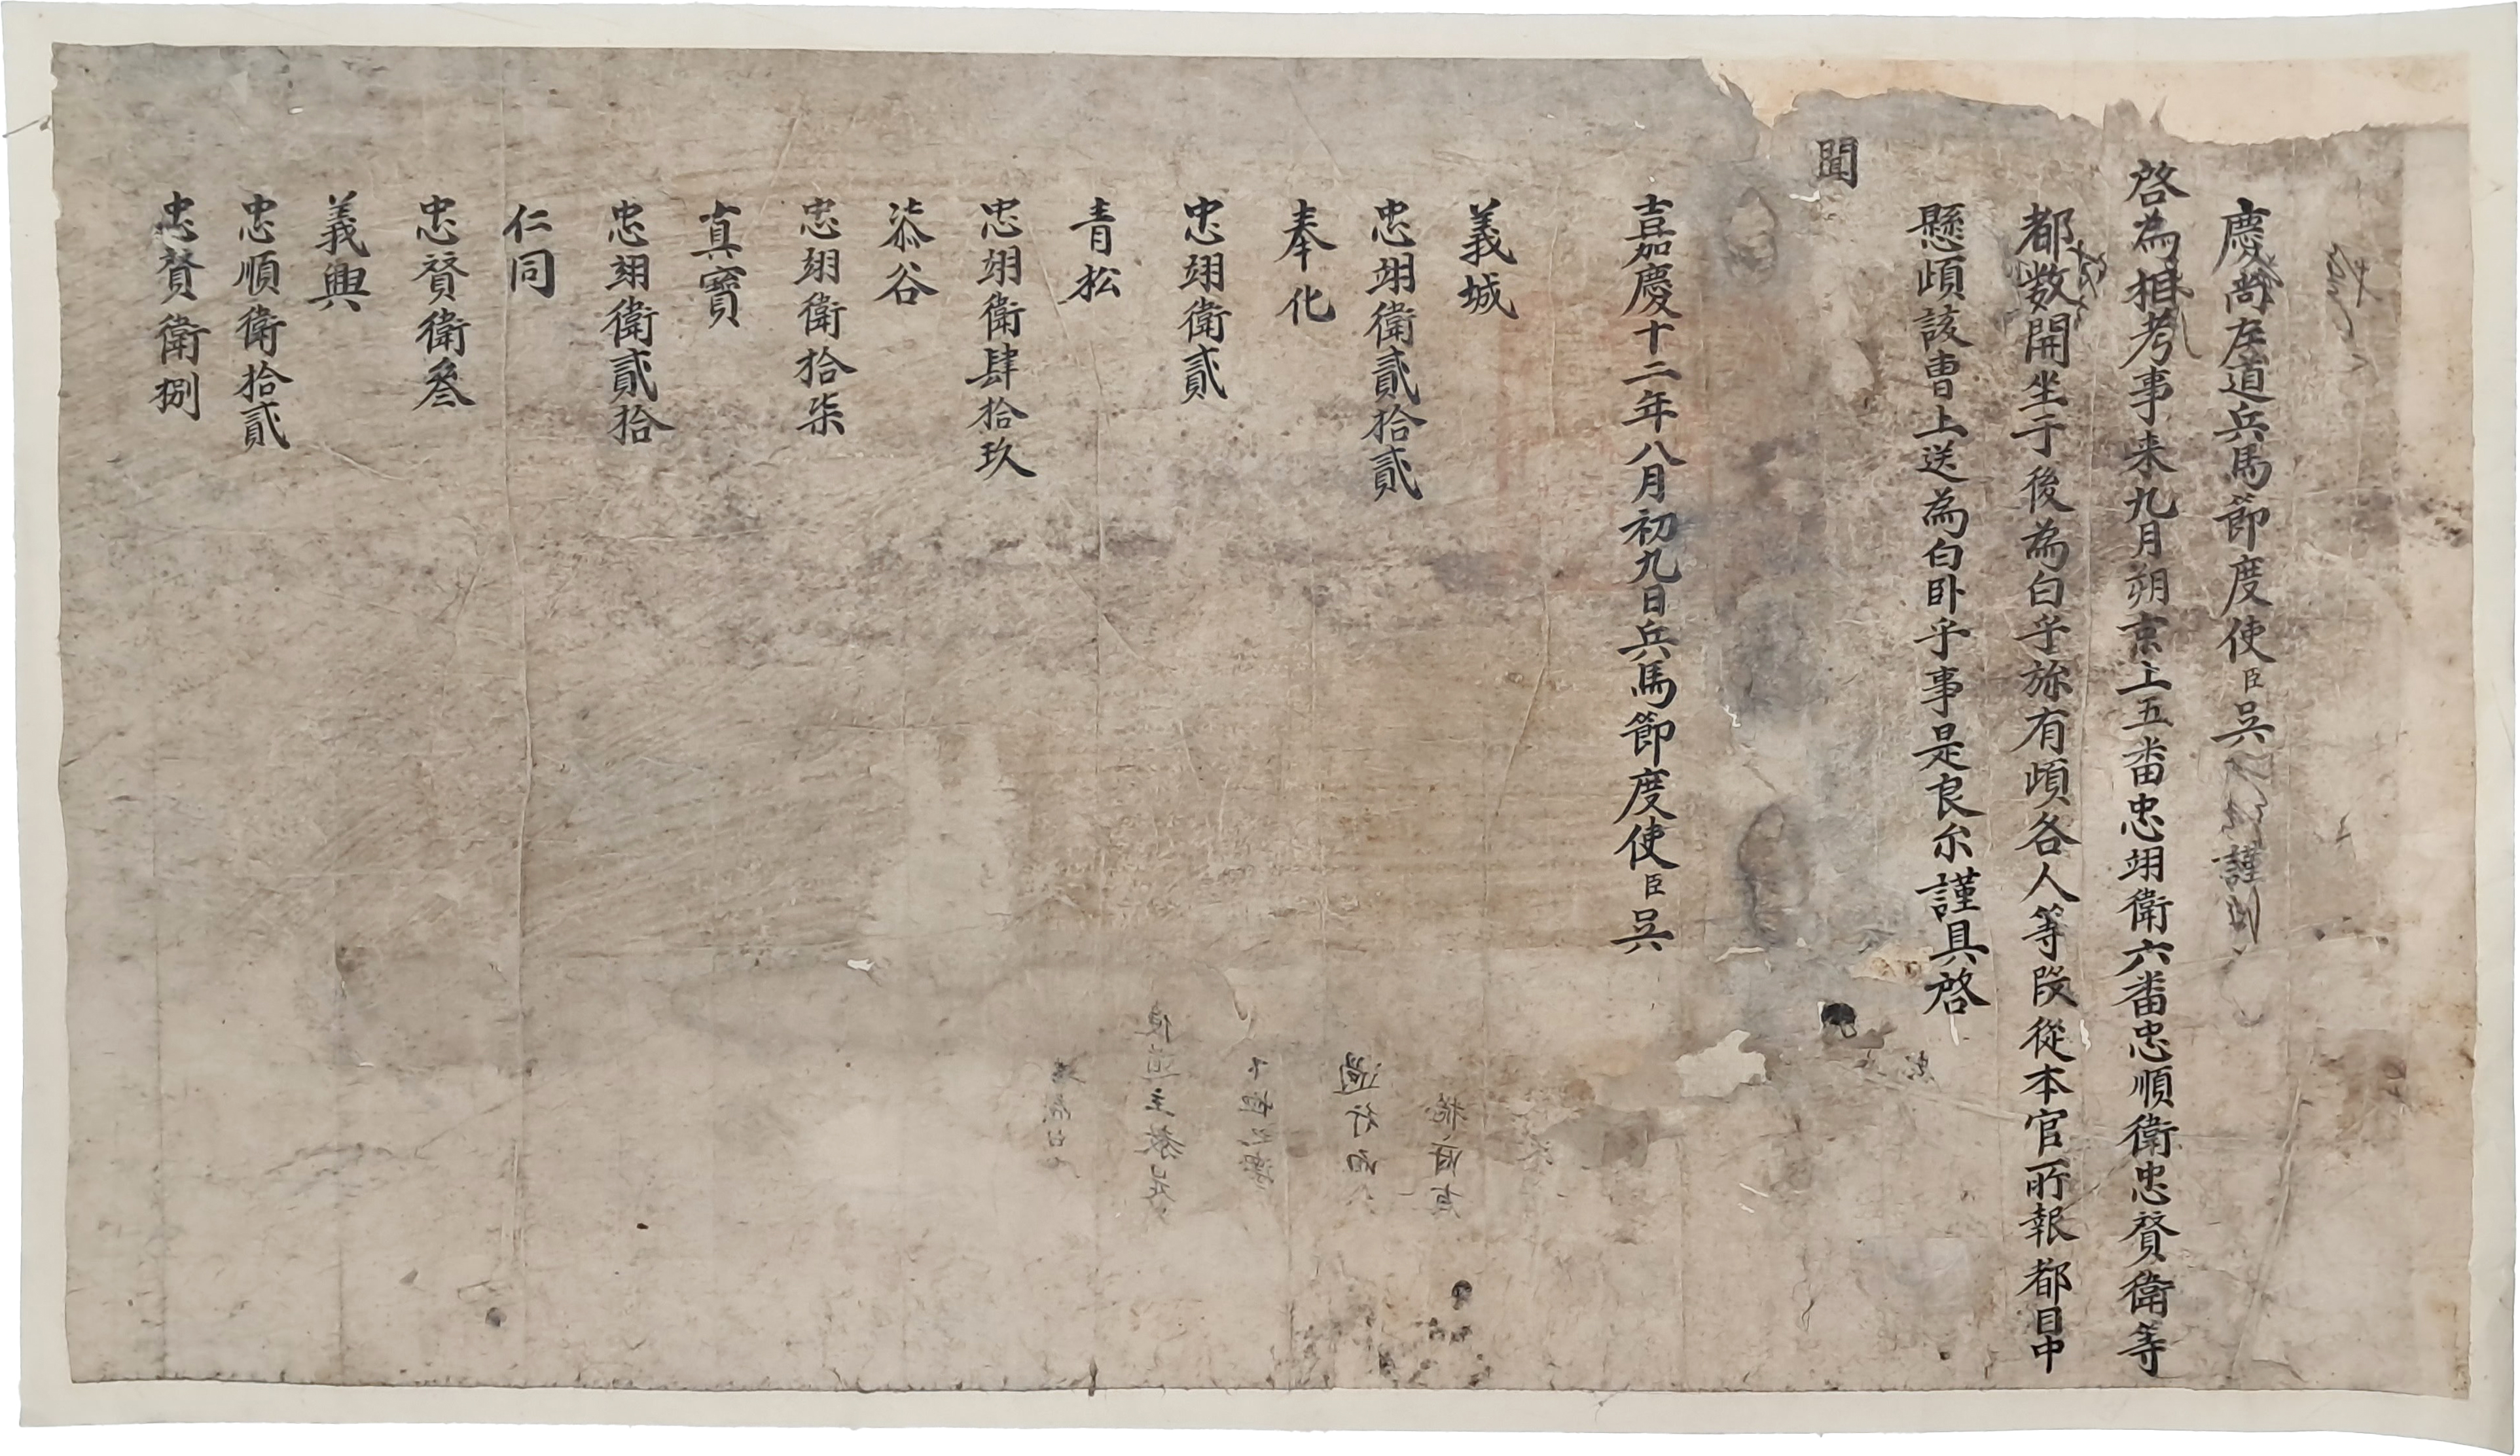 慶尚左道兵馬節度使臣吳 謹
啓為相考事来九月朔京上五番忠翊衛六番忠順衛忠賛衛等
都数開坐于後為白乎旀有頉各人等段従本官所報都目中
懸頉該曹上送為白卧乎事是良尒謹具啓
聞
嘉慶十二年八月初九日兵馬節度使臣吳
義城
忠翊衛貳拾貳
奉化
忠翊衛貳
青松
忠翊衛肆拾玖
柒谷
忠翊衛拾柒
真寶
忠翊衛貳拾
仁同
忠賛衛叄
義興
忠順衛拾貳
忠賛衛捌